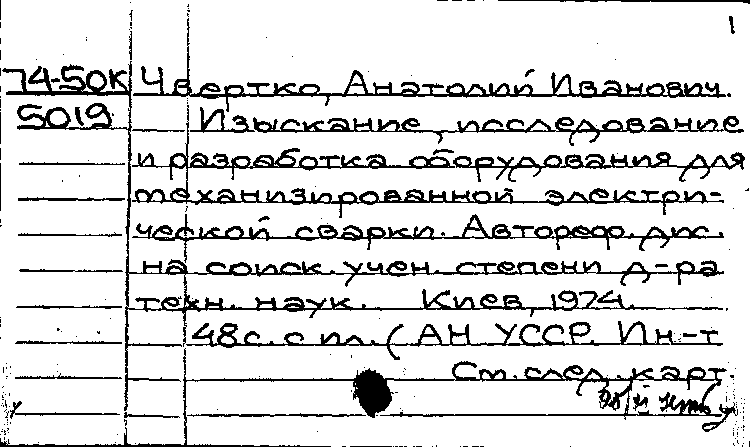 1
74-50к Чвертко, Анатолий Иванович.
5019 Изыскание, исследование
и разработка оборудования для
механизированной электри-
ческой сварки. Автореф. дис.
на соиск. учен. степени д-ра
техн. наук. Киев, 1974.
48с. с ил. (АН УССР. Ин-т
См. след. карт.